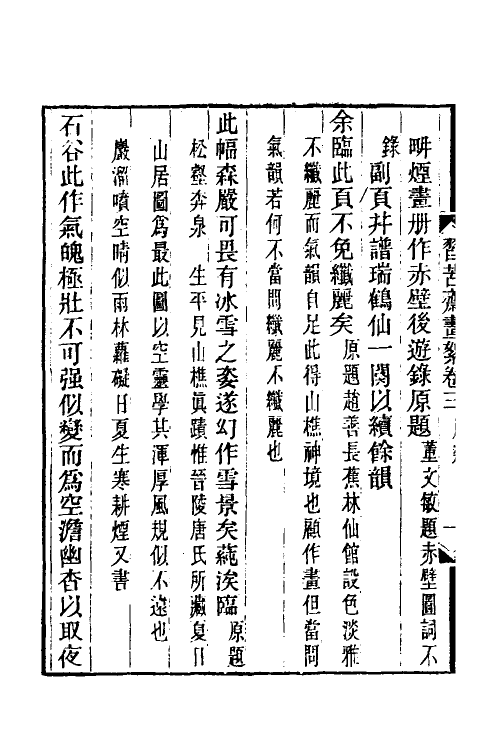 習苦齋畫絮卷三
畊煙畫册作赤壁後遊錄原題董文敏題赤壁圖詞不
錄
副頁幷譜瑞鶴仙一闋以續餘韻
余臨此頁不免纖麗矣原題趙善長蕉林仙館設色淡雅
不纖麗而氣韻自足此得山樵神境也顧作畫但當問
氣韻若何不當問纖麗不纖麗也
此幅森嚴可畏有冰雪之姿遂幻作雪景矣蒓涘臨原題
松壑奔泉 生平見山樵眞蹟惟晉陵唐氏所藏夏日
山居圖爲最此圖以空靈學其渾厚風規似不遠也
巖溜噴空晴似雨林蘿礙日夏生寒耕煙又書
石谷此作氣魄極壯不可强似變而爲空澹幽杳以取夜